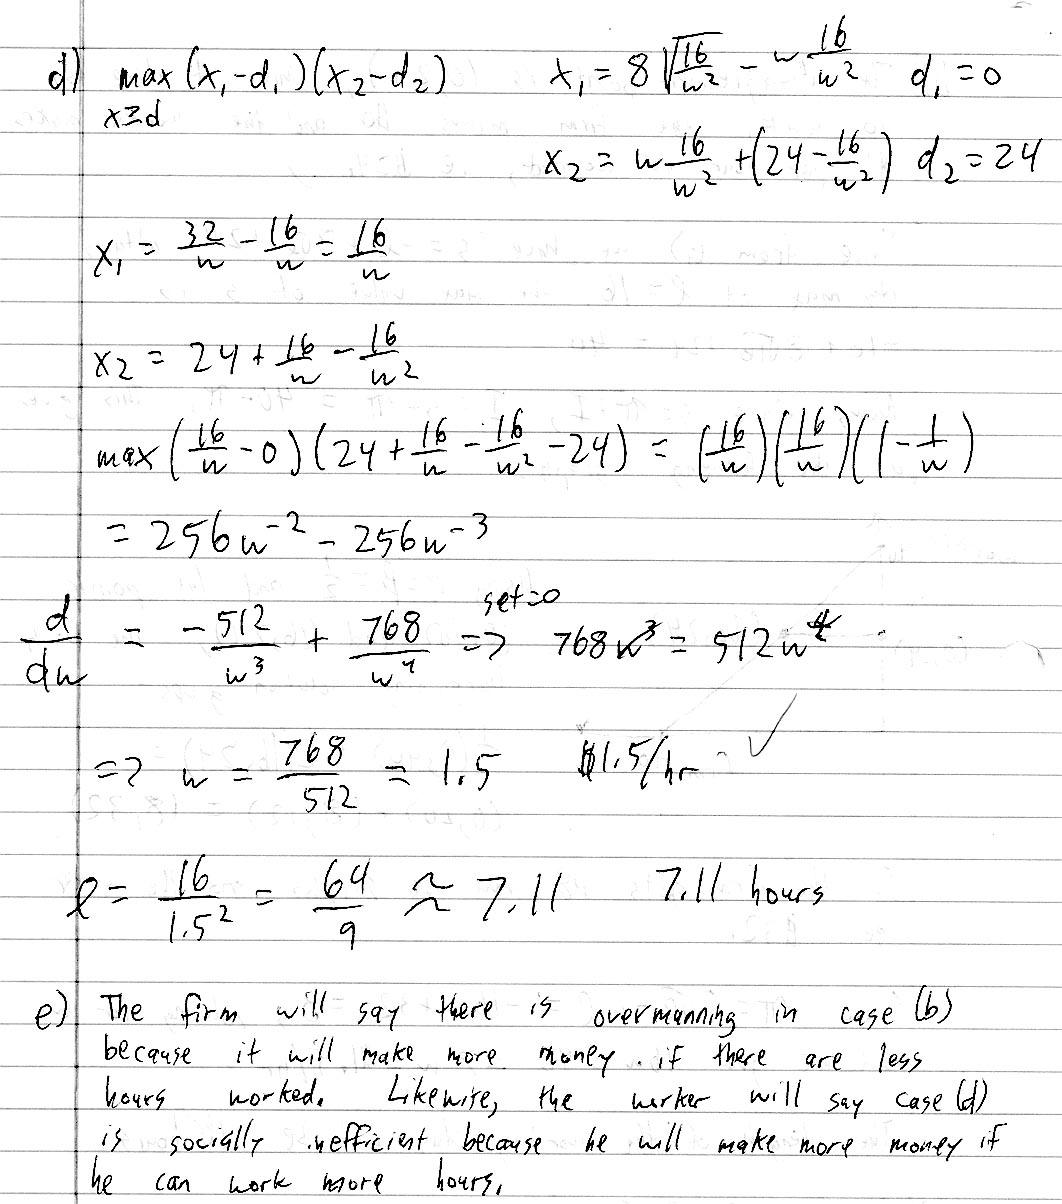 d) max (x₁-d₁)(x₂-d₂) x₁ = 8√(16/w²) - w 16/w² d₁ = 0
x≥d
x₂ = w 16/w² + (24 - 16/w²) d₂ = 24
x₁ = 32/w - 16/w = 16/w
x₂ = 24 + 16/w - 16/w²
max (16/w - 0)(24 + 16/w - 16/w² - 24) = (16/w)(16/w)(1 - 1/w)
= 256w⁻² - 256w⁻³
d/dw = -512/w³ + 768/w⁴ set=0 => 768w³ = 512w⁴
=> w = 768/512 = 1.5 $1.5/hr ✓
ℓ = 16/1.5² = 64/9 ≈ 7.11 7.11 hours
e) The firm will say there is overmanning in case (b)
because it will make more money if there are less
hours worked. Likewise, the worker will say case (d)
is socially inefficient because he will make more money if
he can work more hours.